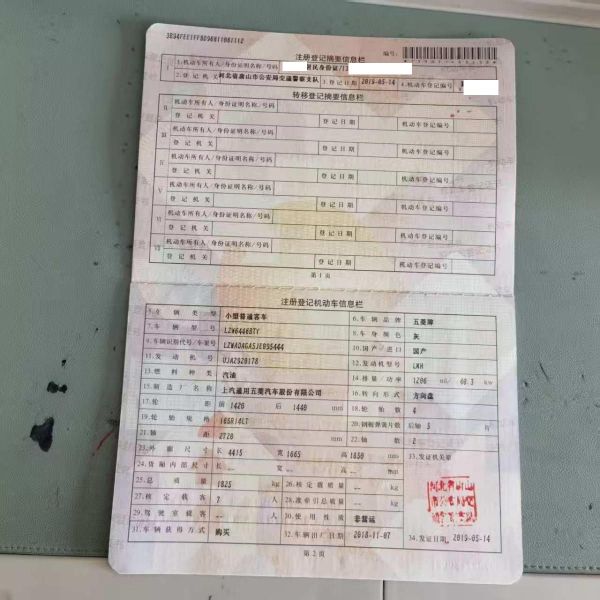 注册登记摘要信息栏
编号:
I
1.机动车所有人/身份证明名称/号码 居民身份证/
2.登记机关 河北省唐山市公安局交通警察支队 3.登记日期 2019-05-14 4.机动车登记编号
转移登记摘要信息栏
II 机动车所有人/身份证明名称/号码
登记机关 登记日期 机动车登记编号
III 机动车所有人/身份证明名称/号码
登记机关 登记日期 机动车登记编号
IV 机动车所有人/身份证明名称/号码
登记机关 登记日期 机动车登记编号
V 机动车所有人/身份证明名称/号码
登记机关 登记日期 机动车登记编号
VI 机动车所有人/身份证明名称/号码
登记机关 登记日期 机动车登记编号
VII 机动车所有人/身份证明名称/号码
登记机关 登记日期 机动车登记编号
第1页
注册登记机动车信息栏
5.车辆类型 小型普通客车 6.车辆品牌 五菱牌
7.车辆型号 LZW6446BTY 8.车身颜色 灰
9.车辆识别代号/车架号 10.国产/进口 国产
11.发动机号 UJA2920178 12.发动机型号 LXH
13.燃料种类 汽油 14.排量/功率 1206 ml kw
15.制造厂名称 上汽通用五菱汽车股份有限公司 16.转向形式 方向盘
17.轮距 前 1426 后 1440 mm 18.轮胎数 4
19.轮胎规格 165R14LT 20.钢板弹簧片数 后轴 5 片
21.轴距 2720 mm 22.轴数 2
23.外廓尺寸 长 4415 宽 1665 高 1850 mm 33.发证机关章
24.货厢内部尺寸 长 -- 宽 -- 高 -- mm
25.总质量 1825 kg 26.核定载质量 -- kg
27.核定载客 7 人 28.准牵引总质量 -- kg
29.驾驶室载客 -- 人 30.使用性质 非营运
31.车辆获得方式 购买 32.车辆出厂日期 2018-11-07 34.发证日期 2019-05-14
第2页